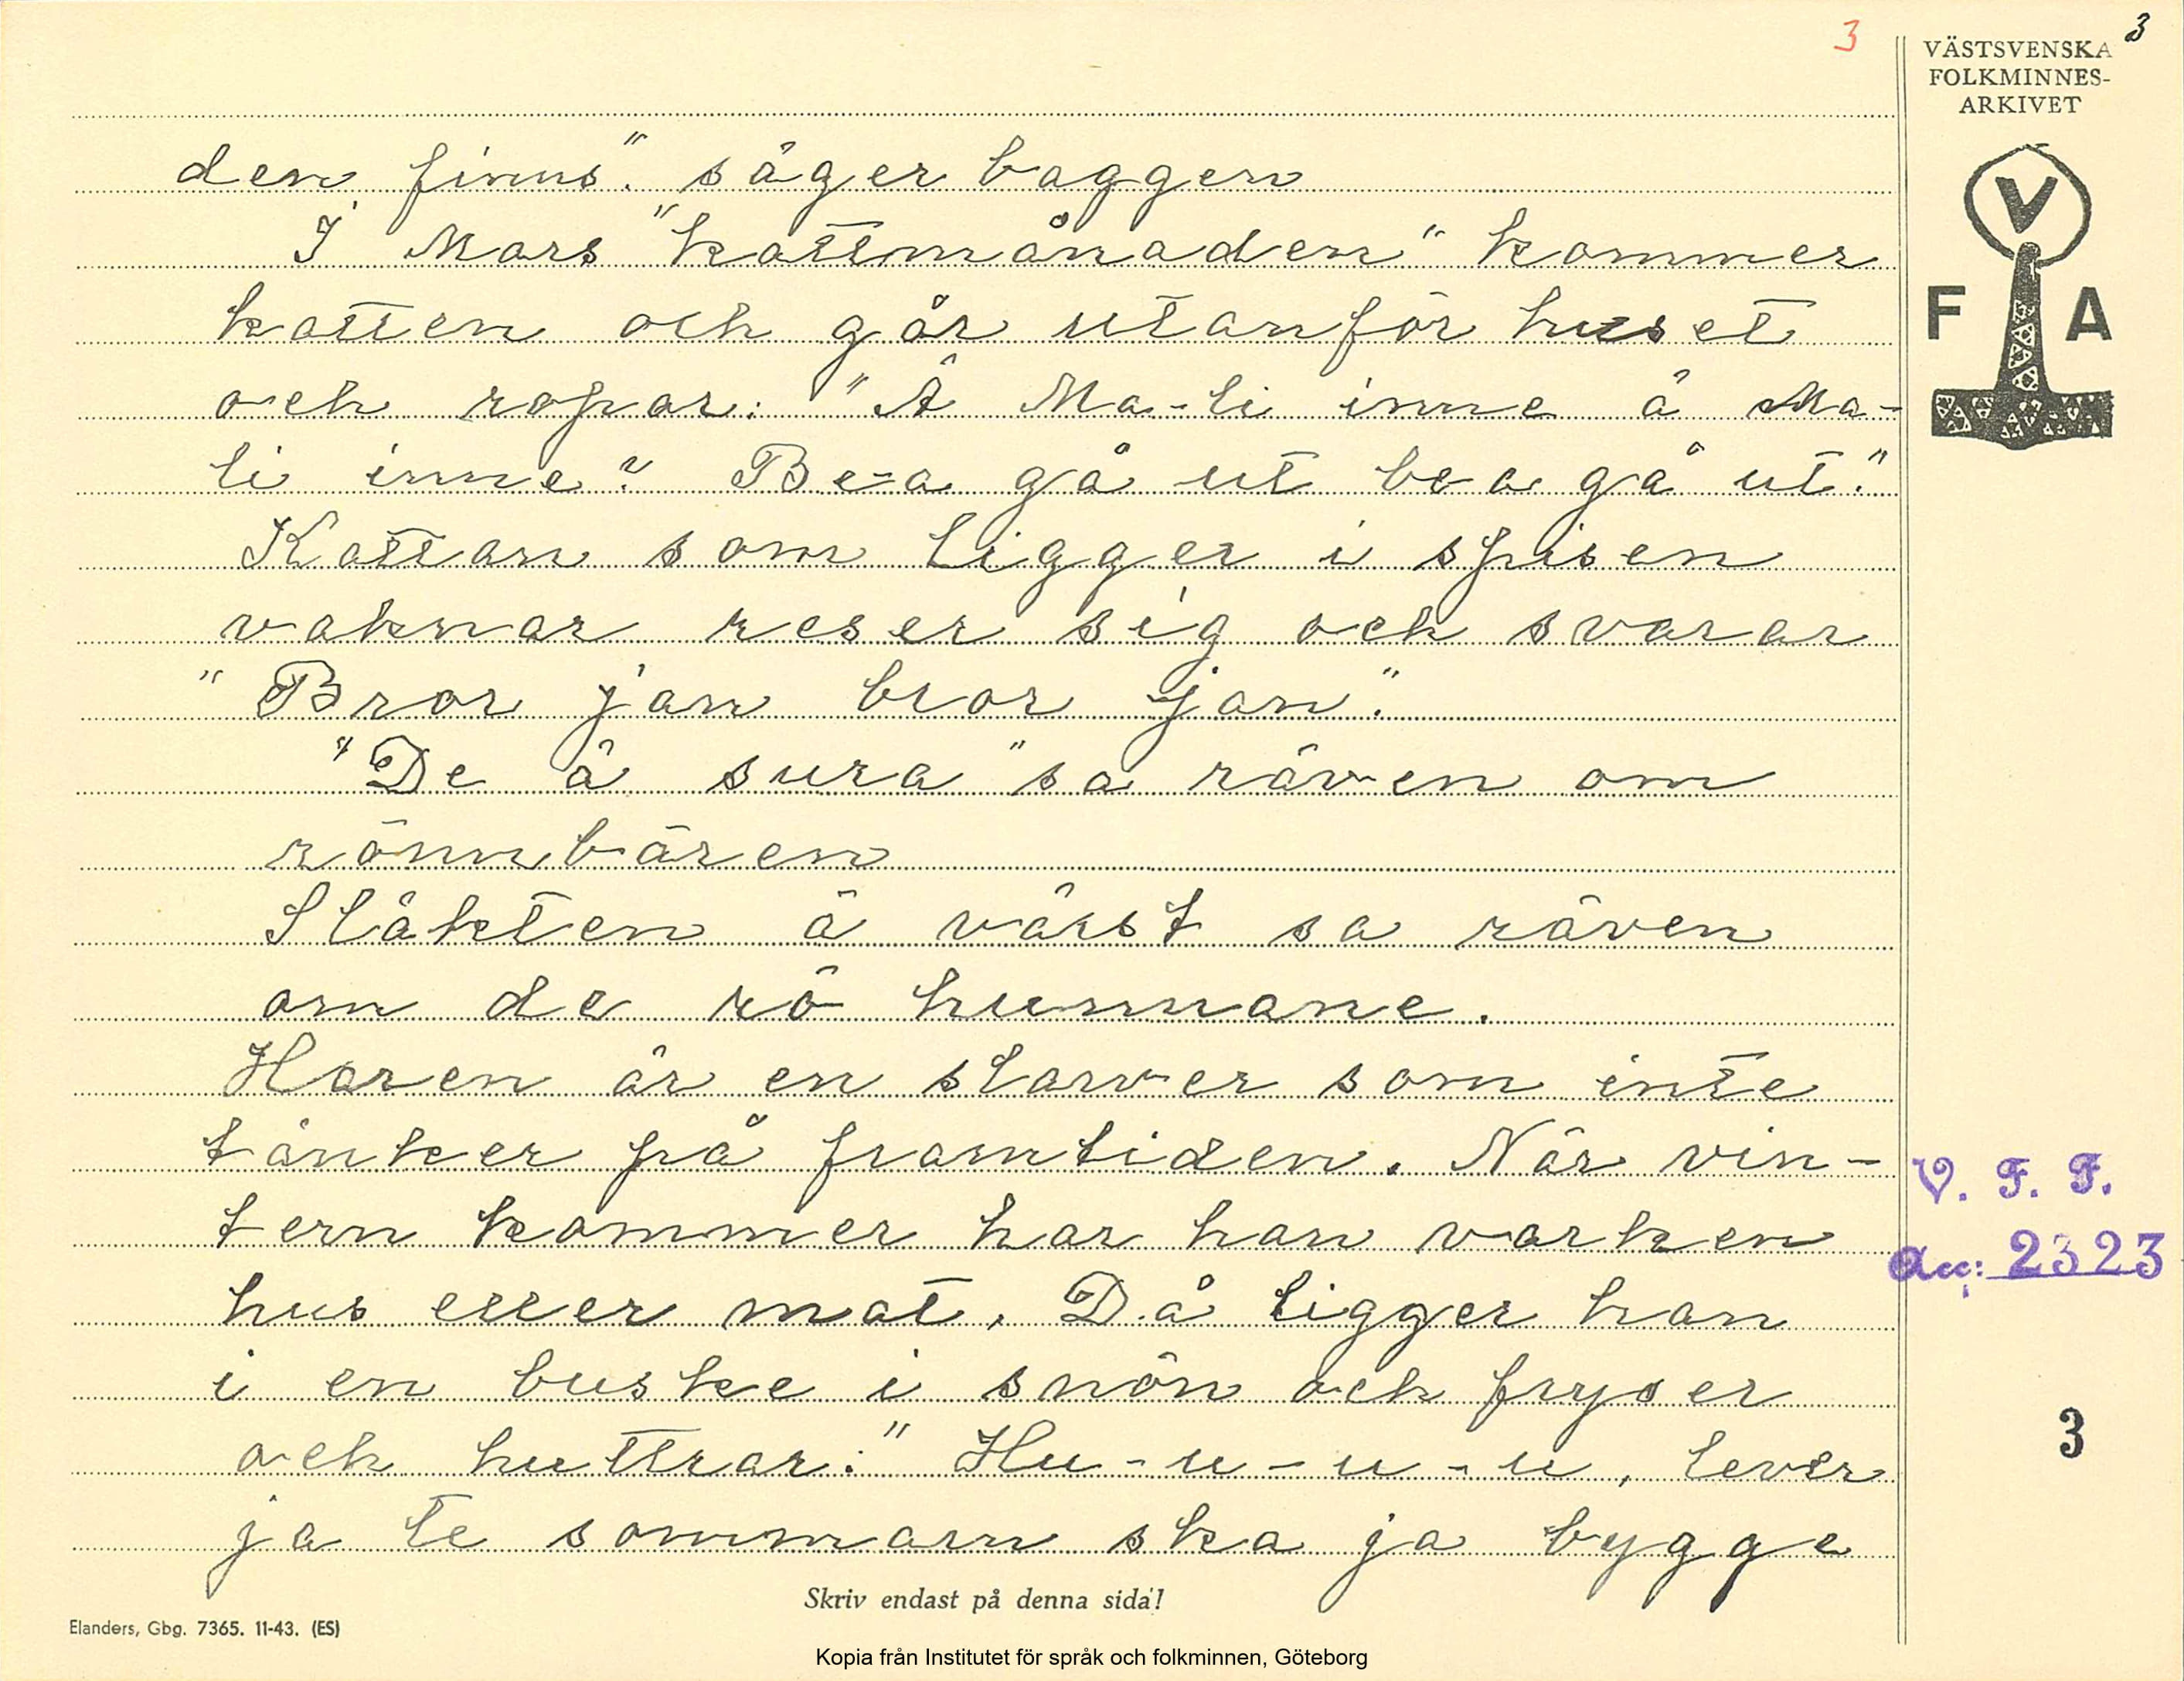 3
3
VÄSTSVENSKA
FOLKMINNES-
ARKIVET
V
F A
den finns." säger baggen
I Mars "kattmånaden" kommer
katten och går utanför huset
och ropar: "Ä Ma-li inne ä Ma-
li inne? Be-a gå ut be a gå ut."
Kattan som ligger i spisen
vaknar reser sig och svarar
"Bror jan bror jan."
"De ä sura" sa räven om
rönnbären
Släkten ä värst sa räven
om de rö hunnane.
Haren är en slarver som inte
tänker på framtiden. När vin-
tern kommer har han varken
hus eller mat. Då ligger han
i en buske i snön och fryser
och huttrar: "Hu-u-u-u, lever
ja te sommarn ska ja bygge
V. F. F.
au: 2323
3
Skriv endast på denna sida!
Elanders, Gbg. 7365. 11-43. (ES)
Kopia från Institutet för språk och folkminnen, Göteborg